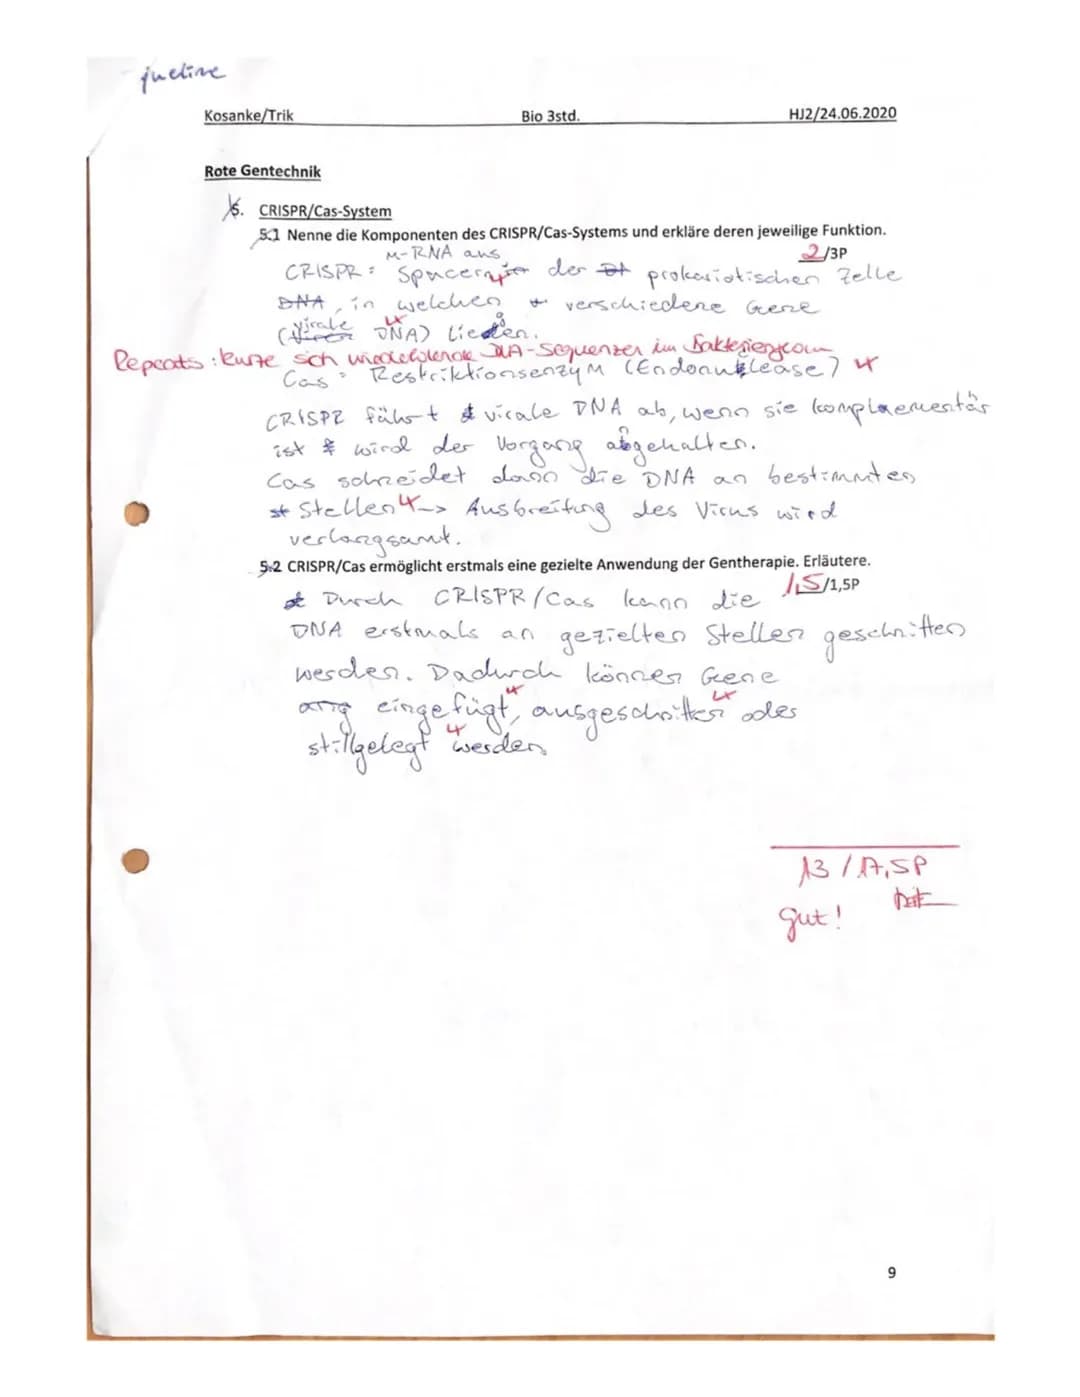 justine
Kosanke/Trik Bio 3std. HJ2/24.06.2020
Rote Gentechnik
5. CRISPR/Cas-System
5.1 Nenne die Komponenten des CRISPR/Cas-Systems und erkläre deren jeweilige Funktion.
2/3P
M-RNA aus
CRISPR: Spacern der prokariotischen Zelle
DNA, in welchen verschiedene Gene
(Virale DNA) liegen.
Repeats: kurze sich wiederholende DNA-Sequenzen im Bakteriengenom
Cas: Restriktionsenzym (Endonuklease)
CRISPR führt virale DNA ab, wenn sie komplementär
ist wird der Vorgang abgehalten.
Cas schneidet dann die DNA an bestimmten
Stellen -> Ausbreitung des Virus wird
verlangsamt.
5.2 CRISPR/Cas ermöglicht erstmals eine gezielte Anwendung der Gentherapie. Erläutere.
1,5/1,5P
Durch CRISPR/Cas kann die
DNA erstmals an gezielten Stellen geschnitten
werden. Dadurch können Gene
eingefügt, ausgeschnitten oder
stillgelegt werden
13/17,5P
gut!
9